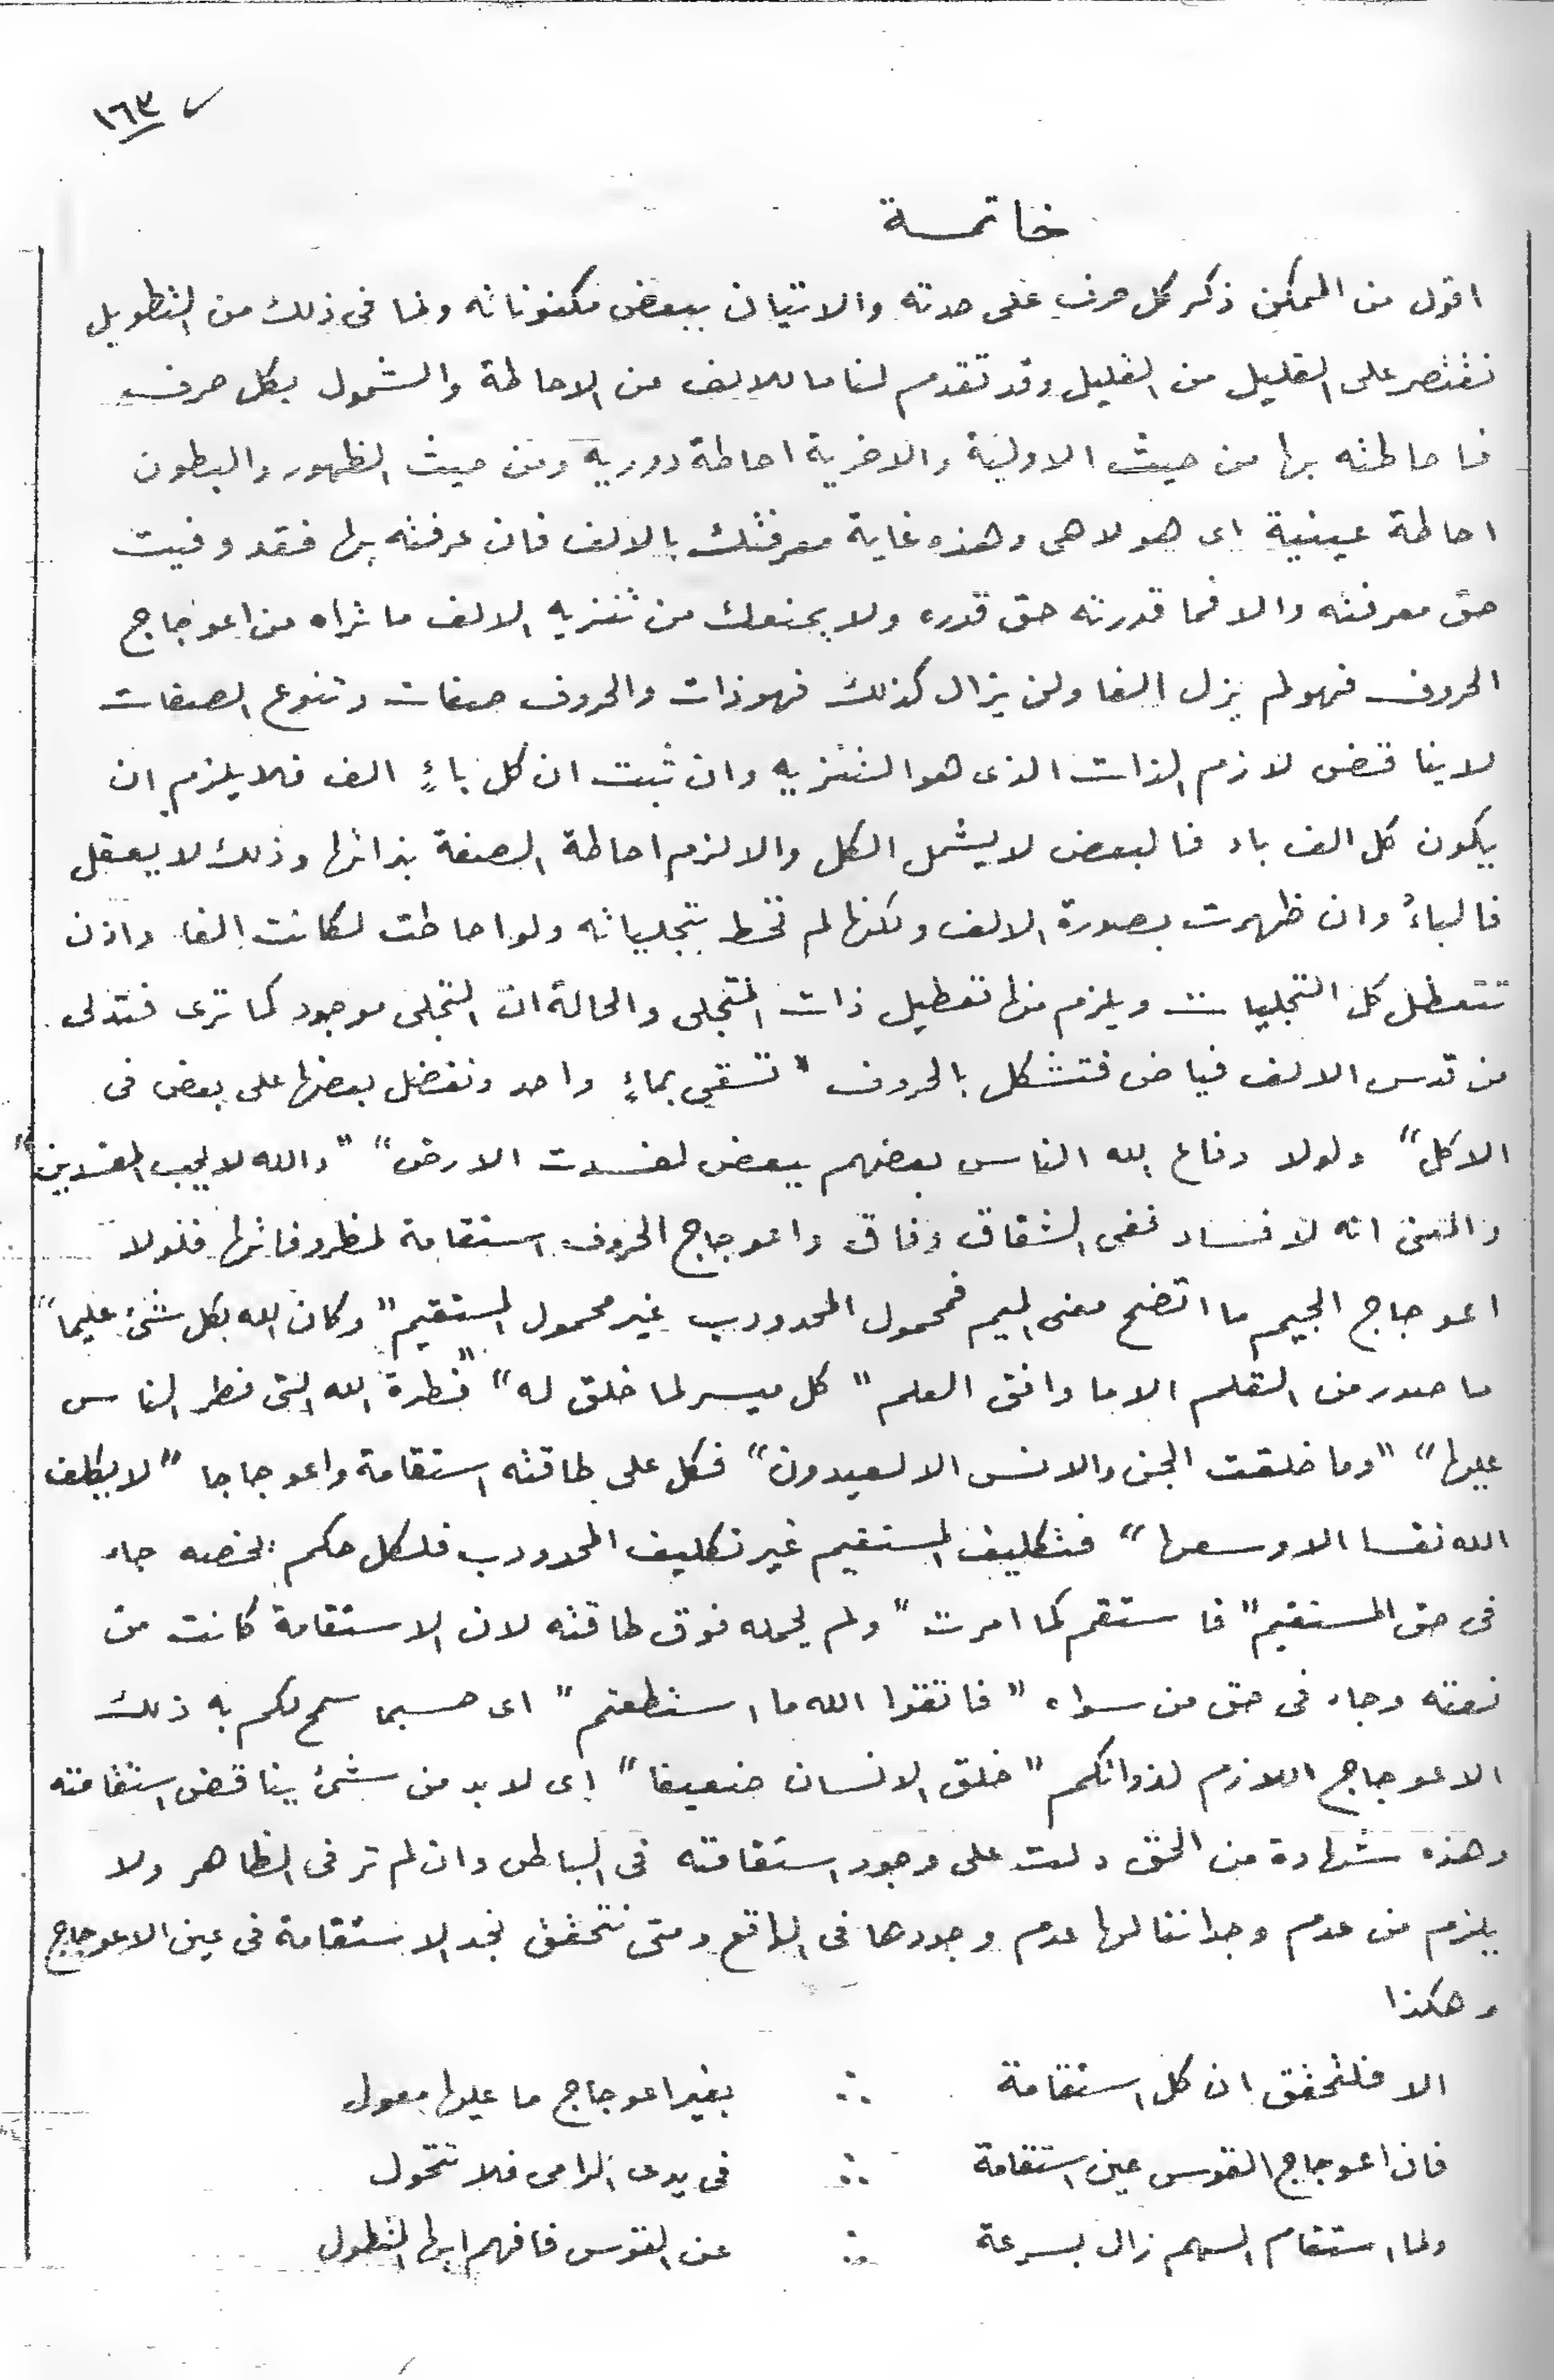 ١٦٣
خاتمة
اقول من الممكن ذكر كل حرف على حدته والاتيان ببعض مكنوناته ولما فى ذلك من التطويل
نقتصر على القليل من القليل وقد تقدم لنا ما للالف من الاحاطة والشمول بكل حرف
فاحاطته بها من حيث الاولية والاخرية احاطة دورية ومن حيث الظهور والبطون
احاطة عينية اى هو لا هى وهذه غاية معرفتك بالالف فان عرفته بها فقد وفيت
حق معرفته والا فما قدرته حق قدره ولا يمنعك من تنزيه الالف ما تراه من اعوجاج
الحروف فهو لم يزل الفا ولن يزال كذلك فهو ذات والحروف صفات وتنوع الصفات
لا يناقض لازم الذات الذى هو التنزيه وان ثبت ان كل باءٍ الف فلا يلزم ان
يكون كل الف باء فالبعض لا يشمل الكل والا لزم احاطة الصفة بذاتها وذلك لا يعقل
فالباءُ وان ظهرت بصورة الالف ولكنها لم تحط بتجلياته ولو احاطت لكانت الفا واذن
تتعطل كل التجليات ويلزم منها تعطيل ذات المتجلى والحالة ان التجلى موجود كما ترى فتدلى
من قدس الالف فياض فتشكل بالحروف " تسقى بماءٍ واحد ونفضل بعضها على بعض فى
الاكل" ولولا دفاع الله الناس بعضهم ببعض لفسدت الارض" "والله لا يحب المفسدين"
والمعنى انه لا فساد ففى الشقاق وفاق واعوجاج الحروف استقامة لمظروفاتها فلولا
اعوجاج الجيم ما اتضح معنى الميم فمحمول المحدودب غير محمول المستقيم "وكان الله بكل شئ عليما"
ما صدر من القلم الا ما وافق العلم "كل ميسر لما خلق له" "فطرة الله التى فطر الناس
عليها" "وما خلقت الجن والانس الا ليعبدون" فكل على طاقته استقامة واعوجاجا "لا يكلف
الله نفسا الا وسعها" فتكليف المستقيم غير تكليف المحدودب فلكل حكم يخصه جاء
فى حق المستقيم "فاستقم كما امرت" ولم يحمله فوق طاقته لان الاستقامة كانت من
نعته وجاء فى حق من سواه "فاتقوا الله ما استطعتم" اى حسبما سمح لكم به ذلك
الاعوجاج اللازم لذواتكم "خلق الانسان ضعيفا" اى لا بد من شئ يناقض استقامته
وهذه شهادة من الحق دلت على وجود استقامته فى الباطن وان لم تر فى الظاهر ولا
يلزم من عدم وجداننا لها عدم وجودها فى الواقع ومتى نتحقق نجد الاستقامة فى عين الاعوجاج
وهكذا
الا فلتحقق ان كل استقامة ∴ بغير اعوجاج ما عليها معول
فان اعوجاج القوس عين استقامة ∴ فى يدى الرامى فلا تتحول
ولما استقام السهم زال بسرعة ∴ عن القوس فافهم ايها المتطول